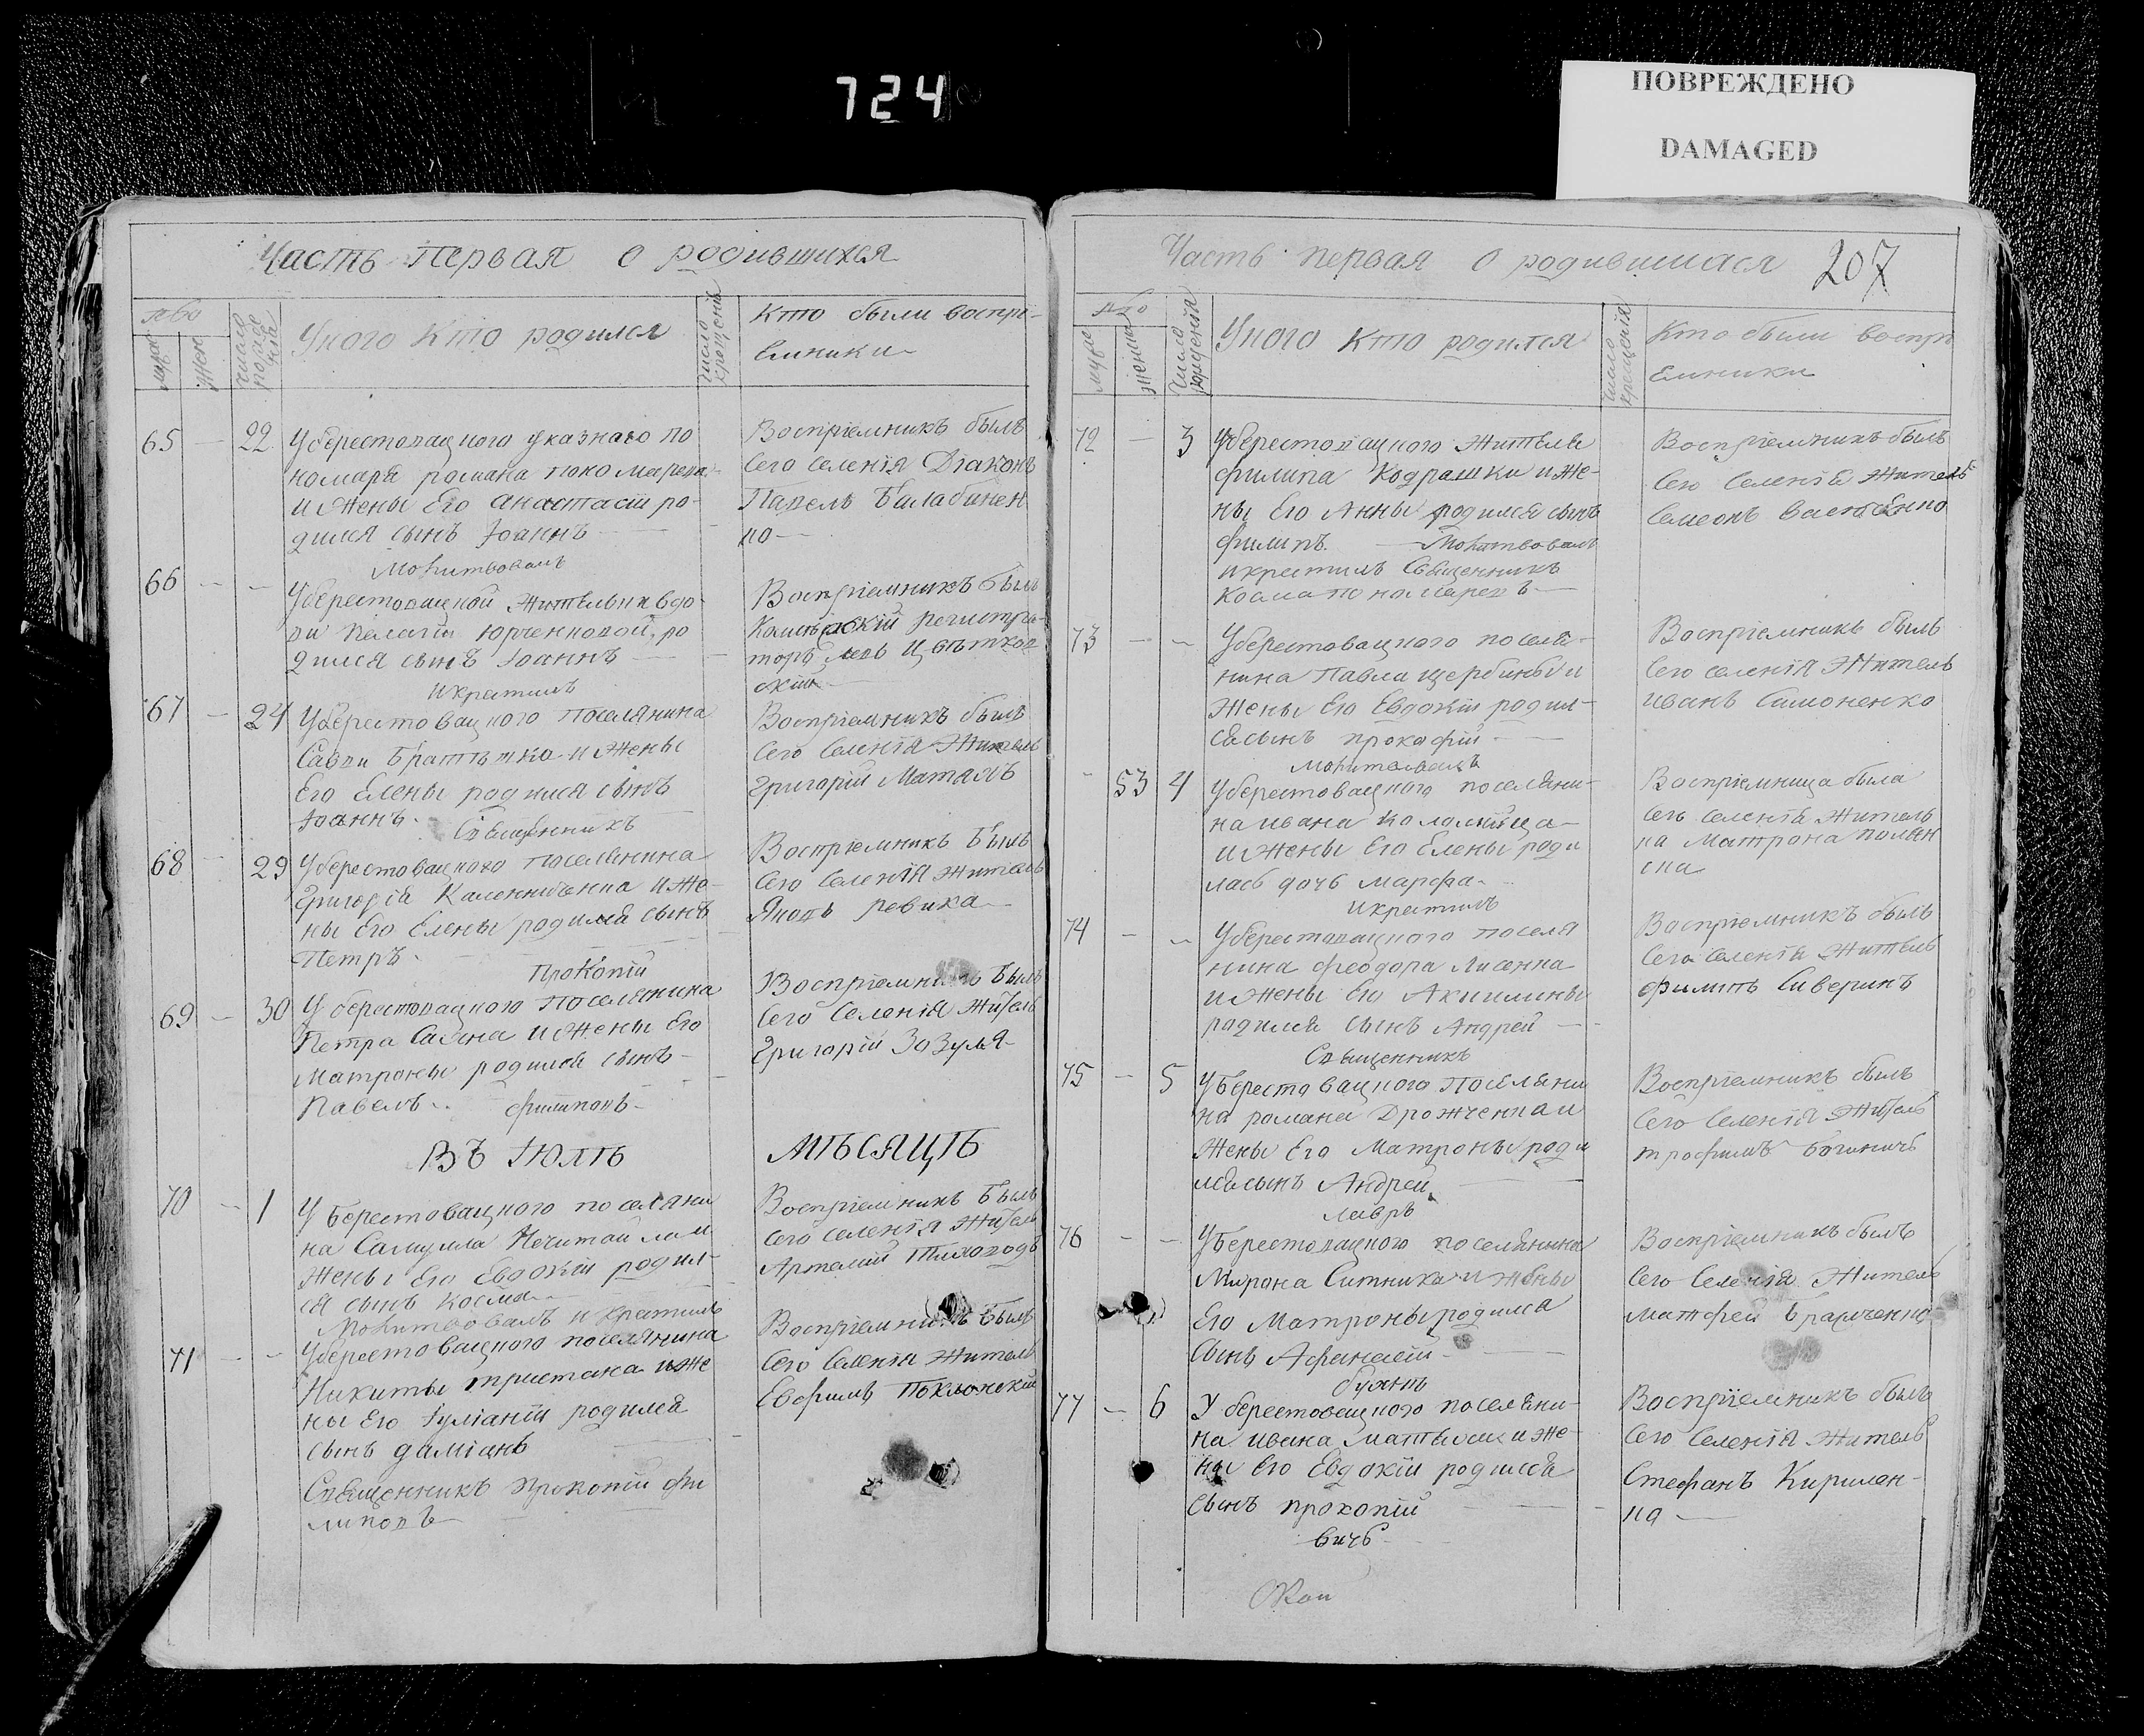 724
ПОВРЕЖДЕНО
DAMAGED
Часть Первая о родившихся
муже
жен
число рожде нія
Уного Кто родился
число крещенія
Кто были воспрі-
емники
65 — 22
Уберестовацкого указнаго по
номаря романа пономарева
и Жены Его анастасіи ро-
дился сынъ Іоаннъ
Молитвовалъ
Воспріемникъ былъ
Сего селенія Діаконъ
Павелъ Балабинен
ко
66 — —
Уберестовацкой жительки вдо-
ви Пелагіи Юрченковой ро
дился сынъ Іоаннъ
икрестилъ
Воспріемникъ былъ
регистра-
торъ Цвѣтков
скій
67 — 24
Уберестовацкого поселянина
Савви Браттѣшка и Жены
Его Елены родился сынъ
Іоаннъ
Священникъ
Воспріемникъ былъ
Сего Селенія Житель
Григорій Маталъ
68 — 29
Уберестовацкого поселянина
Григорія Каленниченка и Же-
ны Его Елены родился сынъ
Петръ
Прокопій
Воспріемникъ былъ
Сего Селенія житель
Яковъ ревика
69 — 30
У берестовацкого поселянина
Петра Саяна и Жены Его
Матроны родился сынъ
Павелъ
филиповъ
Воспріемникъ былъ
Сего Селенія Житель
Григорій Зозуля
ВЪ ІЮЛѢ МѢСЯЦѢ
70 — 1
У Берестовацкого поселяни
на Самуила Нечитайлаи
Жены Его Евдокіи родил-
ся сынъ Косма
Молитвовалъ и крестилъ
Воспріемникъ былъ
сего селенія Житель
Артемій Тиховодъ
71 — —
Уберестовацкого поселянина
Никиты тристана иже
ны Его Іуліаніи родился
сынъ даміанъ
Священникъ Прокопій фи
липовъ
Воспріемникъ былъ
Сего Селенія Житель
Евфимъ Поклонскій
Часть первая о родившихся 207
муже
женска
Число рожденія
Уного Кто родился
число крещенія
Кто были воспрі
емники
72 — 3
Уберестовацкого жителя
филипа Кодрашки иже-
ны Его Анны родился сынъ
филипъ. Молитвовалъ
икрестилъ Священникъ
Косма пономаревъ
Воспріемникъ былъ
Сего Селенія Житель
Симеонъ
73 — —
Уберестовацкого поселя-
нина Павла щербины и
Жены Его Евдокіи родил-
ся сынъ прокофій
Молитвовалъ
Воспріемникъ былъ
Сего селенія Житель
иванъ Симоненко
53 4
Уберестовацкого поселяни-
на ивана Коломійца
и Жены Его Елены роди
лась дочь Марфа
икрестилъ
Воспріемница была
сего селенія житель
ка Матрона полян
ска
74 — —
Уберестовацкого поселя
нина феодора Лисенка
и Жены Его Акилины
родился сынъ Андрей
Священникъ
Воспріемникъ былъ
Сего селенія Житель
филипъ Сиверинъ
75 — 5
Уберестовацкого поселяни
на романа Дрожченкаи
Жены Его Матроны роди
лся сынъ Андрей
Лавръ
Воспріемникъ былъ
Сего Селенія Житель
трофимъ Богиничъ
76 — —
Уберестовацкого поселянина
Мирона Ситника и жены
Его Матроны родился
Сынъ Афанасій
Буянъ
Воспріемникъ былъ
Сего Селенія Житель
матфей Храмченко
77 — 6
У берестовацкого поселяни-
на ивана Маттѣаша и же
ны Его Евдокіи родился
сынъ прокопій
вичъ
Воспріемникъ былъ
Сего Селенія житель
Стефанъ Кирилен-
ко